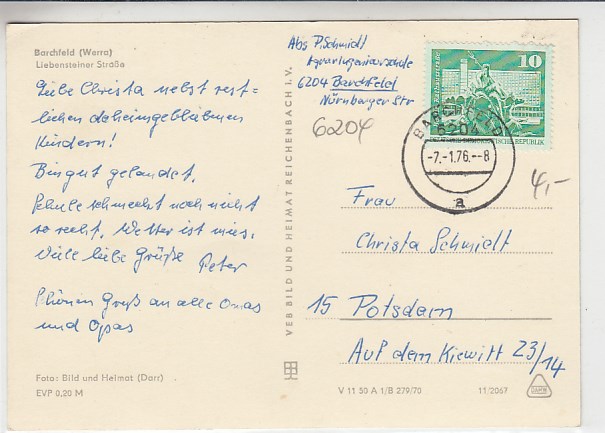 Barchfeld (Werra)
Liebensteiner Straße
Liebe Christa nebst rest-
lichen daheimgebliebenen
Kindern!
Bin gut gelandet.
Schule schmeckt noch nicht
so recht. Wetter ist mies.
Viele liebe Grüße Peter
Schönen Gruß an alle Omas
und Opas
Foto: Bild und Heimat (Darr)
EVP 0,20 M
VEB BILD UND HEIMAT REICHENBACH I. V.
Abs P. Schmidt
Agraringenieurschule
6204 Barchfeld
Nürnberger Str
6204
10
BARCHFELD
6204
-7.-1.76.-8
a
4,-
Frau
Christa Schmidt
15 Potsdam
Auf dem Kiewitt 23/14
V 11 50 A 1/B 279/70
11/2067